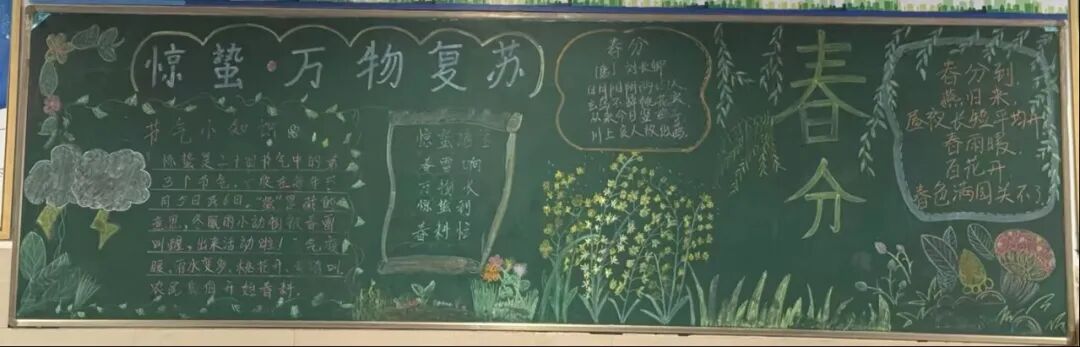 惊蛰·万物复苏
节气小知识
惊蛰是二十四节气中的第
三个节气，
月5日或6日，
意思，冬眠的小动物被春雷
叫醒，出来活动啦！
暖，雨水变多，桃花开，
农民伯伯开始春耕。
惊蛰
春雷响
万物
惊蛰
春耕忙
春分
刘长卿
日月阳阴两
玄鸟不辞桃花
从来今日竖
川上良人
春分
春分到，
燕归来，
昼夜长短平均开
春雨暖，
百花开，
春色满园关不了